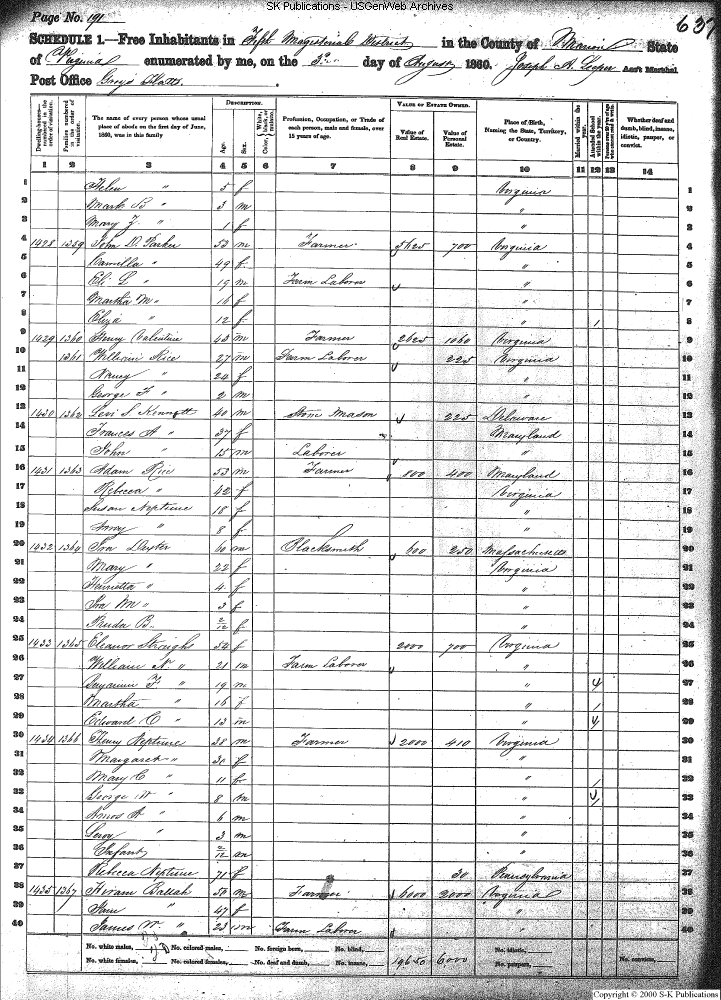 SK Publications - USGenWeb Archives
Page No. 191
637
SCHEDULE 1.—Free Inhabitants in Fifth Magisterial District in the County of Marion State
of Virginia enumerated by me, on the day of August 1860. Joseph A. Ass't Marshal
Post Office Grays Flatts.
Dwelling-houses—numbered in the order of visitation.
Families numbered in the order of visitation.
The name of every person whose usual place of abode on the first day of June, 1860, was in this family
DESCRIPTION.
Age.
Sex.
Color, White, black, or mulatto.
Profession, Occupation, or Trade of each person, male and female, over 15 years of age.
VALUE OF ESTATE OWNED.
Value of Real Estate.
Value of Personal Estate.
Place of Birth, Naming the State, Territory, or Country.
Married within the year.
Attended School within the year.
Persons over 20 y'rs of age who cannot read & write.
Whether deaf and dumb, blind, insane, idiotic, pauper, or convict.
1 2 3 4 5 6 7 8 9 10 11 12 13 14
1 Helen " 5 f Virginia 1
2 Mark B " 3 m " 2
3 Mary J. " 1 f " 3
4 1428 1359 John D. Parker 53 m Farmer 5625 700 Virginia 4
5 Camilla " 49 f " 5
6 Eli L " 19 m Farm Laborer " 6
7 Martha M " 16 f " 7
8 Eliza " 12 f " 1 8
9 1429 1360 Henry Valentine 43 m Farmer 2625 1060 Virginia 9
10 1361 William Rice 27 m Farm Laborer 225 Virginia 10
11 Nancy " 24 f " 11
12 George F " 2 m " 12
13 1430 1362 Levi S. Kennett 40 m Stone Mason 225 Delaware 13
14 Frances A " 37 f Maryland 14
15 John " 15 m Laborer " 15
16 1431 1363 Adam Rice 53 m Farmer 800 400 Maryland 16
17 Rebecca " 42 f Virginia 17
18 Susan Neptune 18 f " 18
19 Amy " 8 f " 19
20 1432 1364 Ira Dexter 60 m Blacksmith 600 250 Massachusetts 20
21 Mary " 22 f Virginia 21
22 Henrietta " 4 f " 22
23 Ira M " 3 f " 23
24 B. 2/12 f " 24
25 1433 1365 Eleanor Straight 52 f 2000 700 Virginia 25
26 William N " 21 m Farm Laborer " 26
27 Benjamin F " 19 m " 27
28 Martha " 16 f " 1 28
29 Edward C " 13 m " 29
30 1434 1366 Henry Neptune 38 m Farmer 2000 410 Virginia 30
31 Margaret " 30 f " 31
32 Mary C " 11 f " 1 32
33 George W " 8 m " 33
34 Amos A " 6 m " 34
35 Leroy " 3 m " 35
36 Infant 2/12 m " 36
37 Rebecca Neptune 71 f 30 Pennsylvania 37
38 1435 1367 Hiram Ballah 50 m Farmer 6000 2000 Virginia 38
39 Jane " 47 f " 39
40 James W " 23 m Farm Laborer " 40
No. white males, No. colored males, No. foreign born, No. blind, No. idiotic,
No. white females, No. colored females, No. deaf and dumb, No. insane, 19650 6000 No. paupers, No. convicts,
Copyright © 2000 S-K Publications